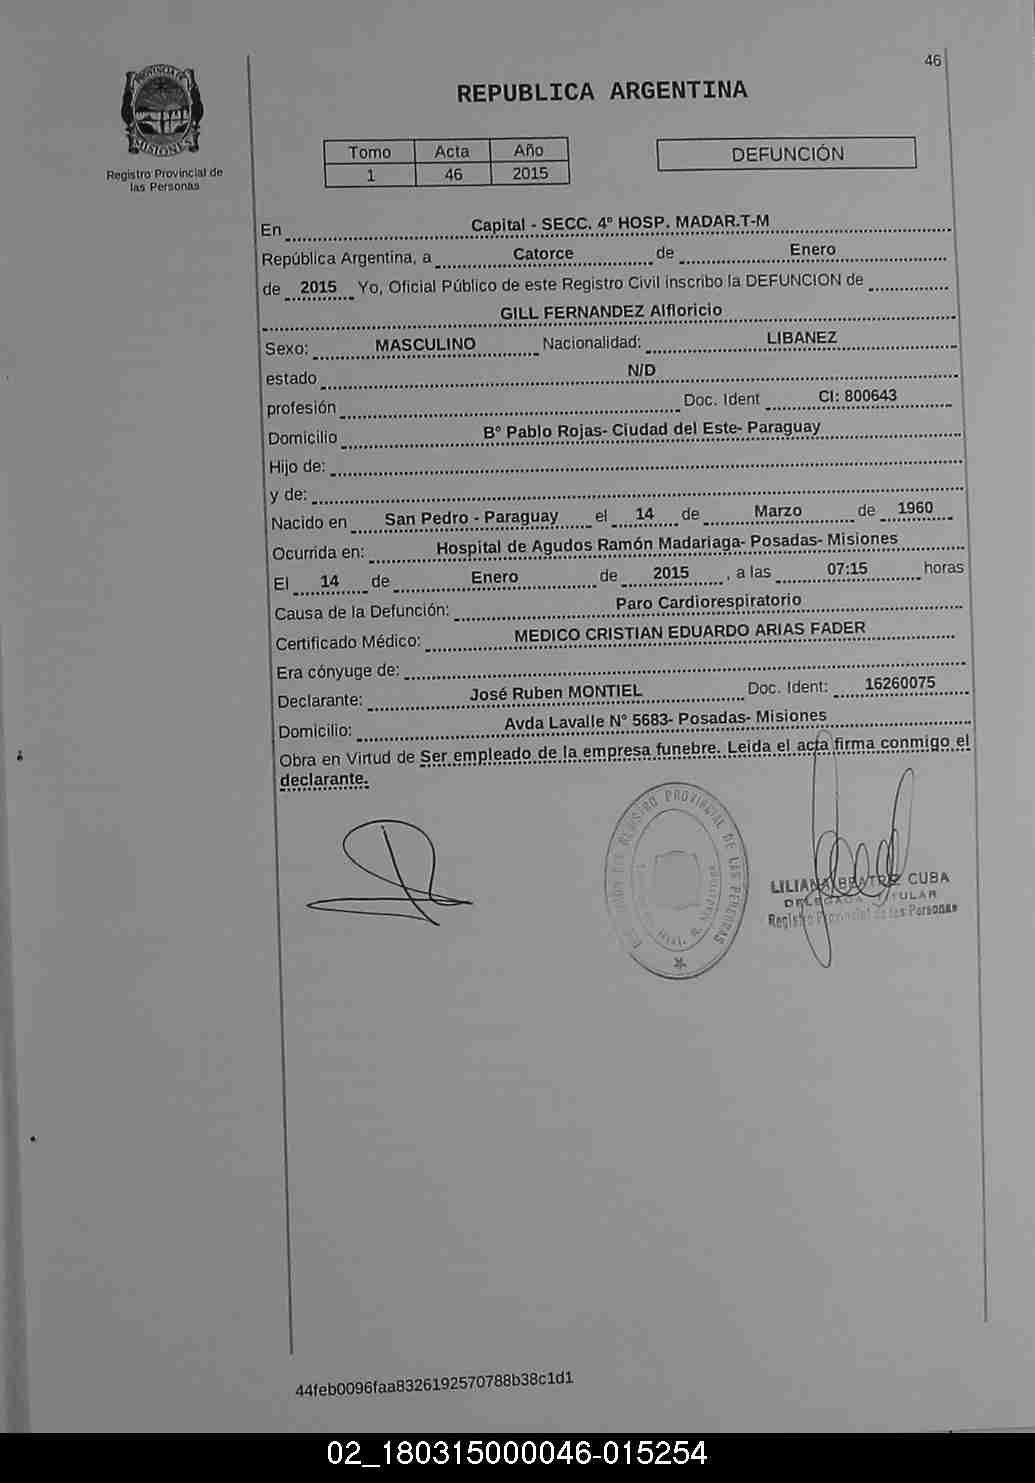 46
PROVINCIA DE
MISIONES
Registro Provincial de
las Personas
REPUBLICA ARGENTINA
Tomo Acta Año
1 46 2015
DEFUNCIÓN
En Capital - SECC. 4º HOSP. MADAR.T-M
República Argentina, a Catorce de Enero
de 2015 Yo, Oficial Público de este Registro Civil inscribo la DEFUNCION de
GILL FERNANDEZ Alfloricio
Sexo: MASCULINO Nacionalidad: LIBANEZ
estado N/D
profesión Doc. Ident CI: 800643
Domicilio Bº Pablo Rojas- Ciudad del Este- Paraguay
Hijo de:
y de:
Nacido en San Pedro - Paraguay el 14 de Marzo de 1960
Ocurrida en: Hospital de Agudos Ramón Madariaga- Posadas- Misiones
El 14 de Enero de 2015 , a las 07:15 horas
Causa de la Defunción: Paro Cardiorespiratorio
Certificado Médico: MEDICO CRISTIAN EDUARDO ARIAS FADER
Era cónyuge de:
Declarante: José Ruben MONTIEL Doc. Ident: 16260075
Domicilio: Avda Lavalle Nº 5683- Posadas- Misiones
Obra en Virtud de Ser empleado de la empresa funebre. Leida el acta firma conmigo el
declarante.
REGISTRO PROVINCIAL DE LAS PERSONAS
LILIANA BEATRIZ CUBA
DELEGADA TITULAR
Registro Provincial de las Personas
44feb0096faa8326192570788b38c1d1
02_180315000046-015254